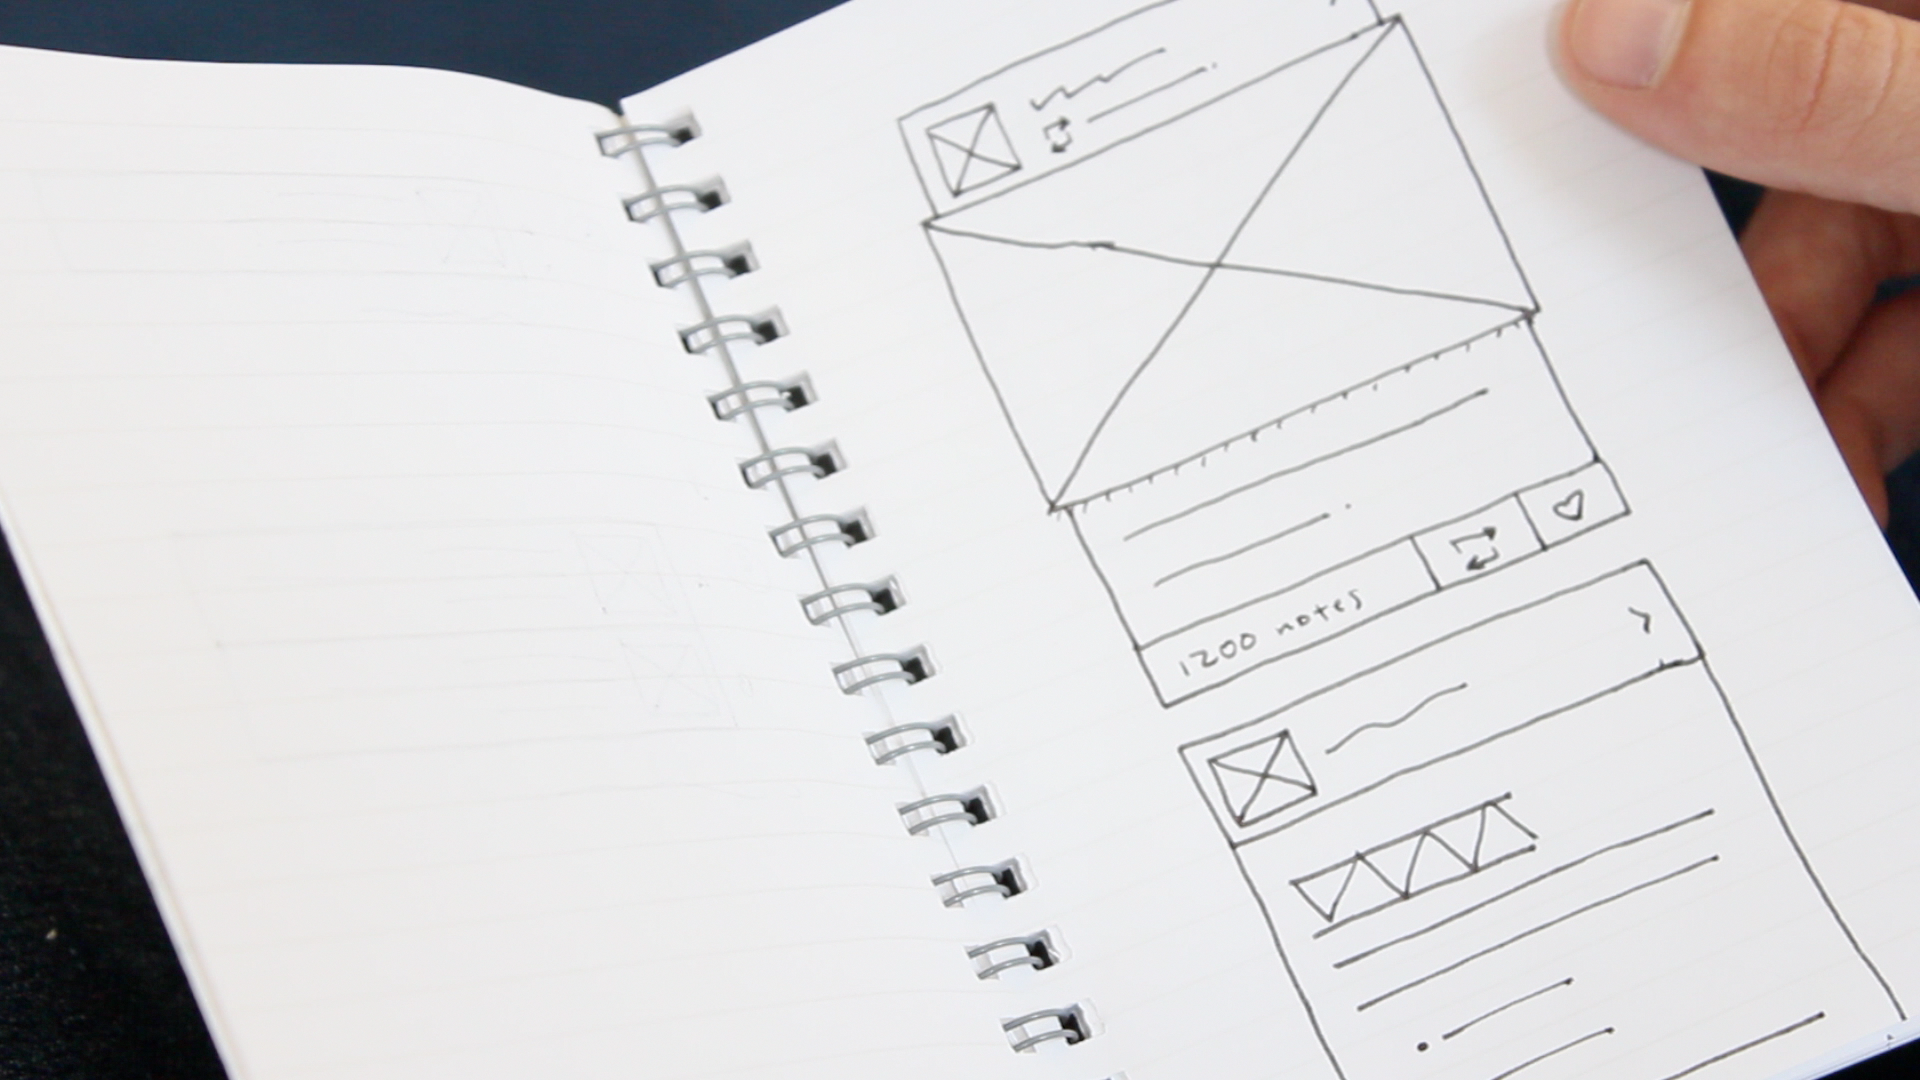 1200 notes